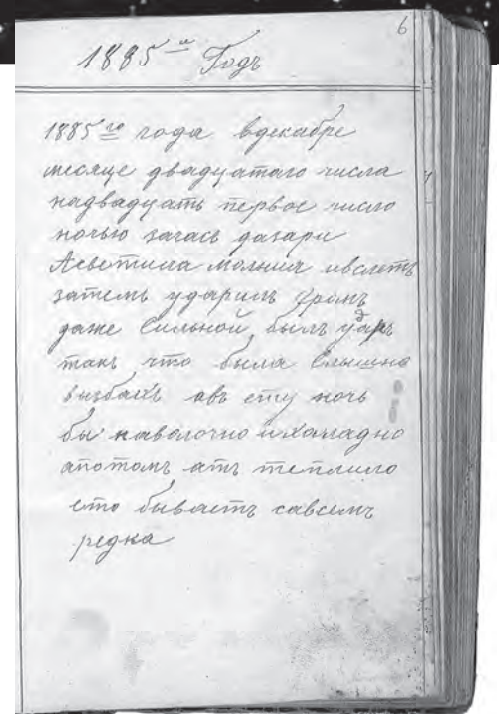 6
1885 й Годъ
1885 го года вдекабре
месяце двадцатаго числа
надвадцать первое число
ночью зачасъ дазари
Асветила молния ивслетъ
затемъ ударилъ громъ
даже Сильной былъ ударъ
такъ что была Слышно
вызбахъ авъ ету ночь
бы наволочно ихаладно
апотомъ атъ теплило
ето бываетъ савсемъ
редка